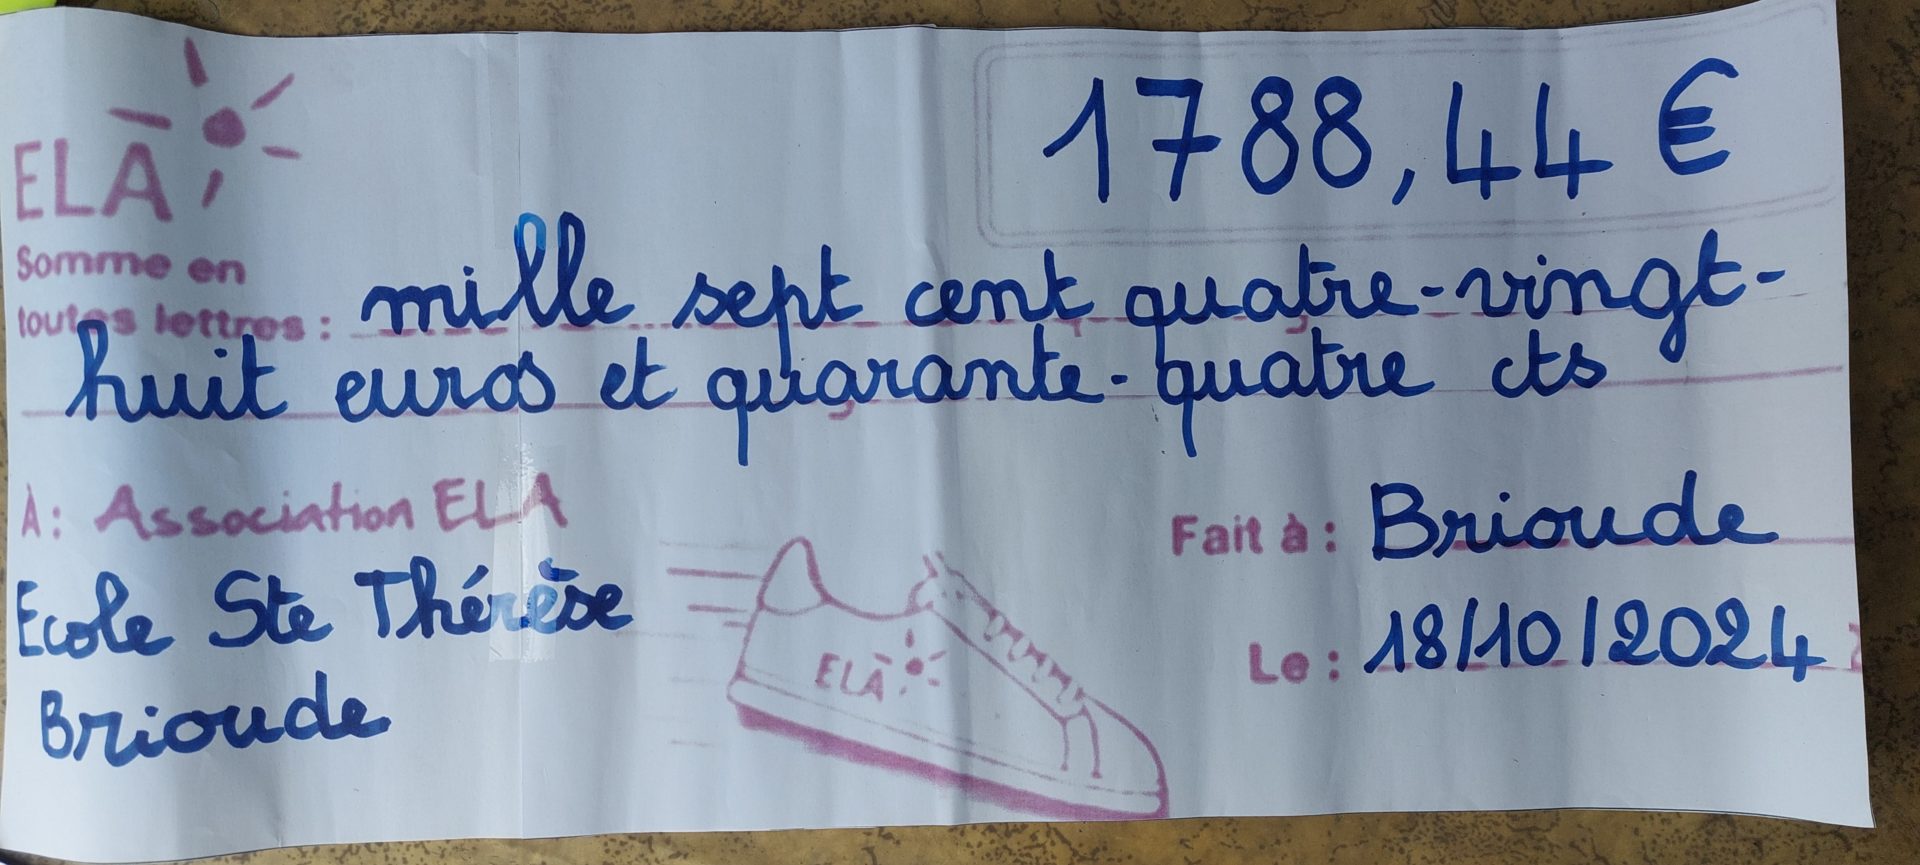 ELA
1788,44 €
Somme en
toutes lettres : mille sept cent quatre-vingt-
huit euros et quarante-quatre cts
À : Association ELA
Ecole Ste Thérèse
Brioude
ELA
Fait à : Brioude
Le : 18/10/2024